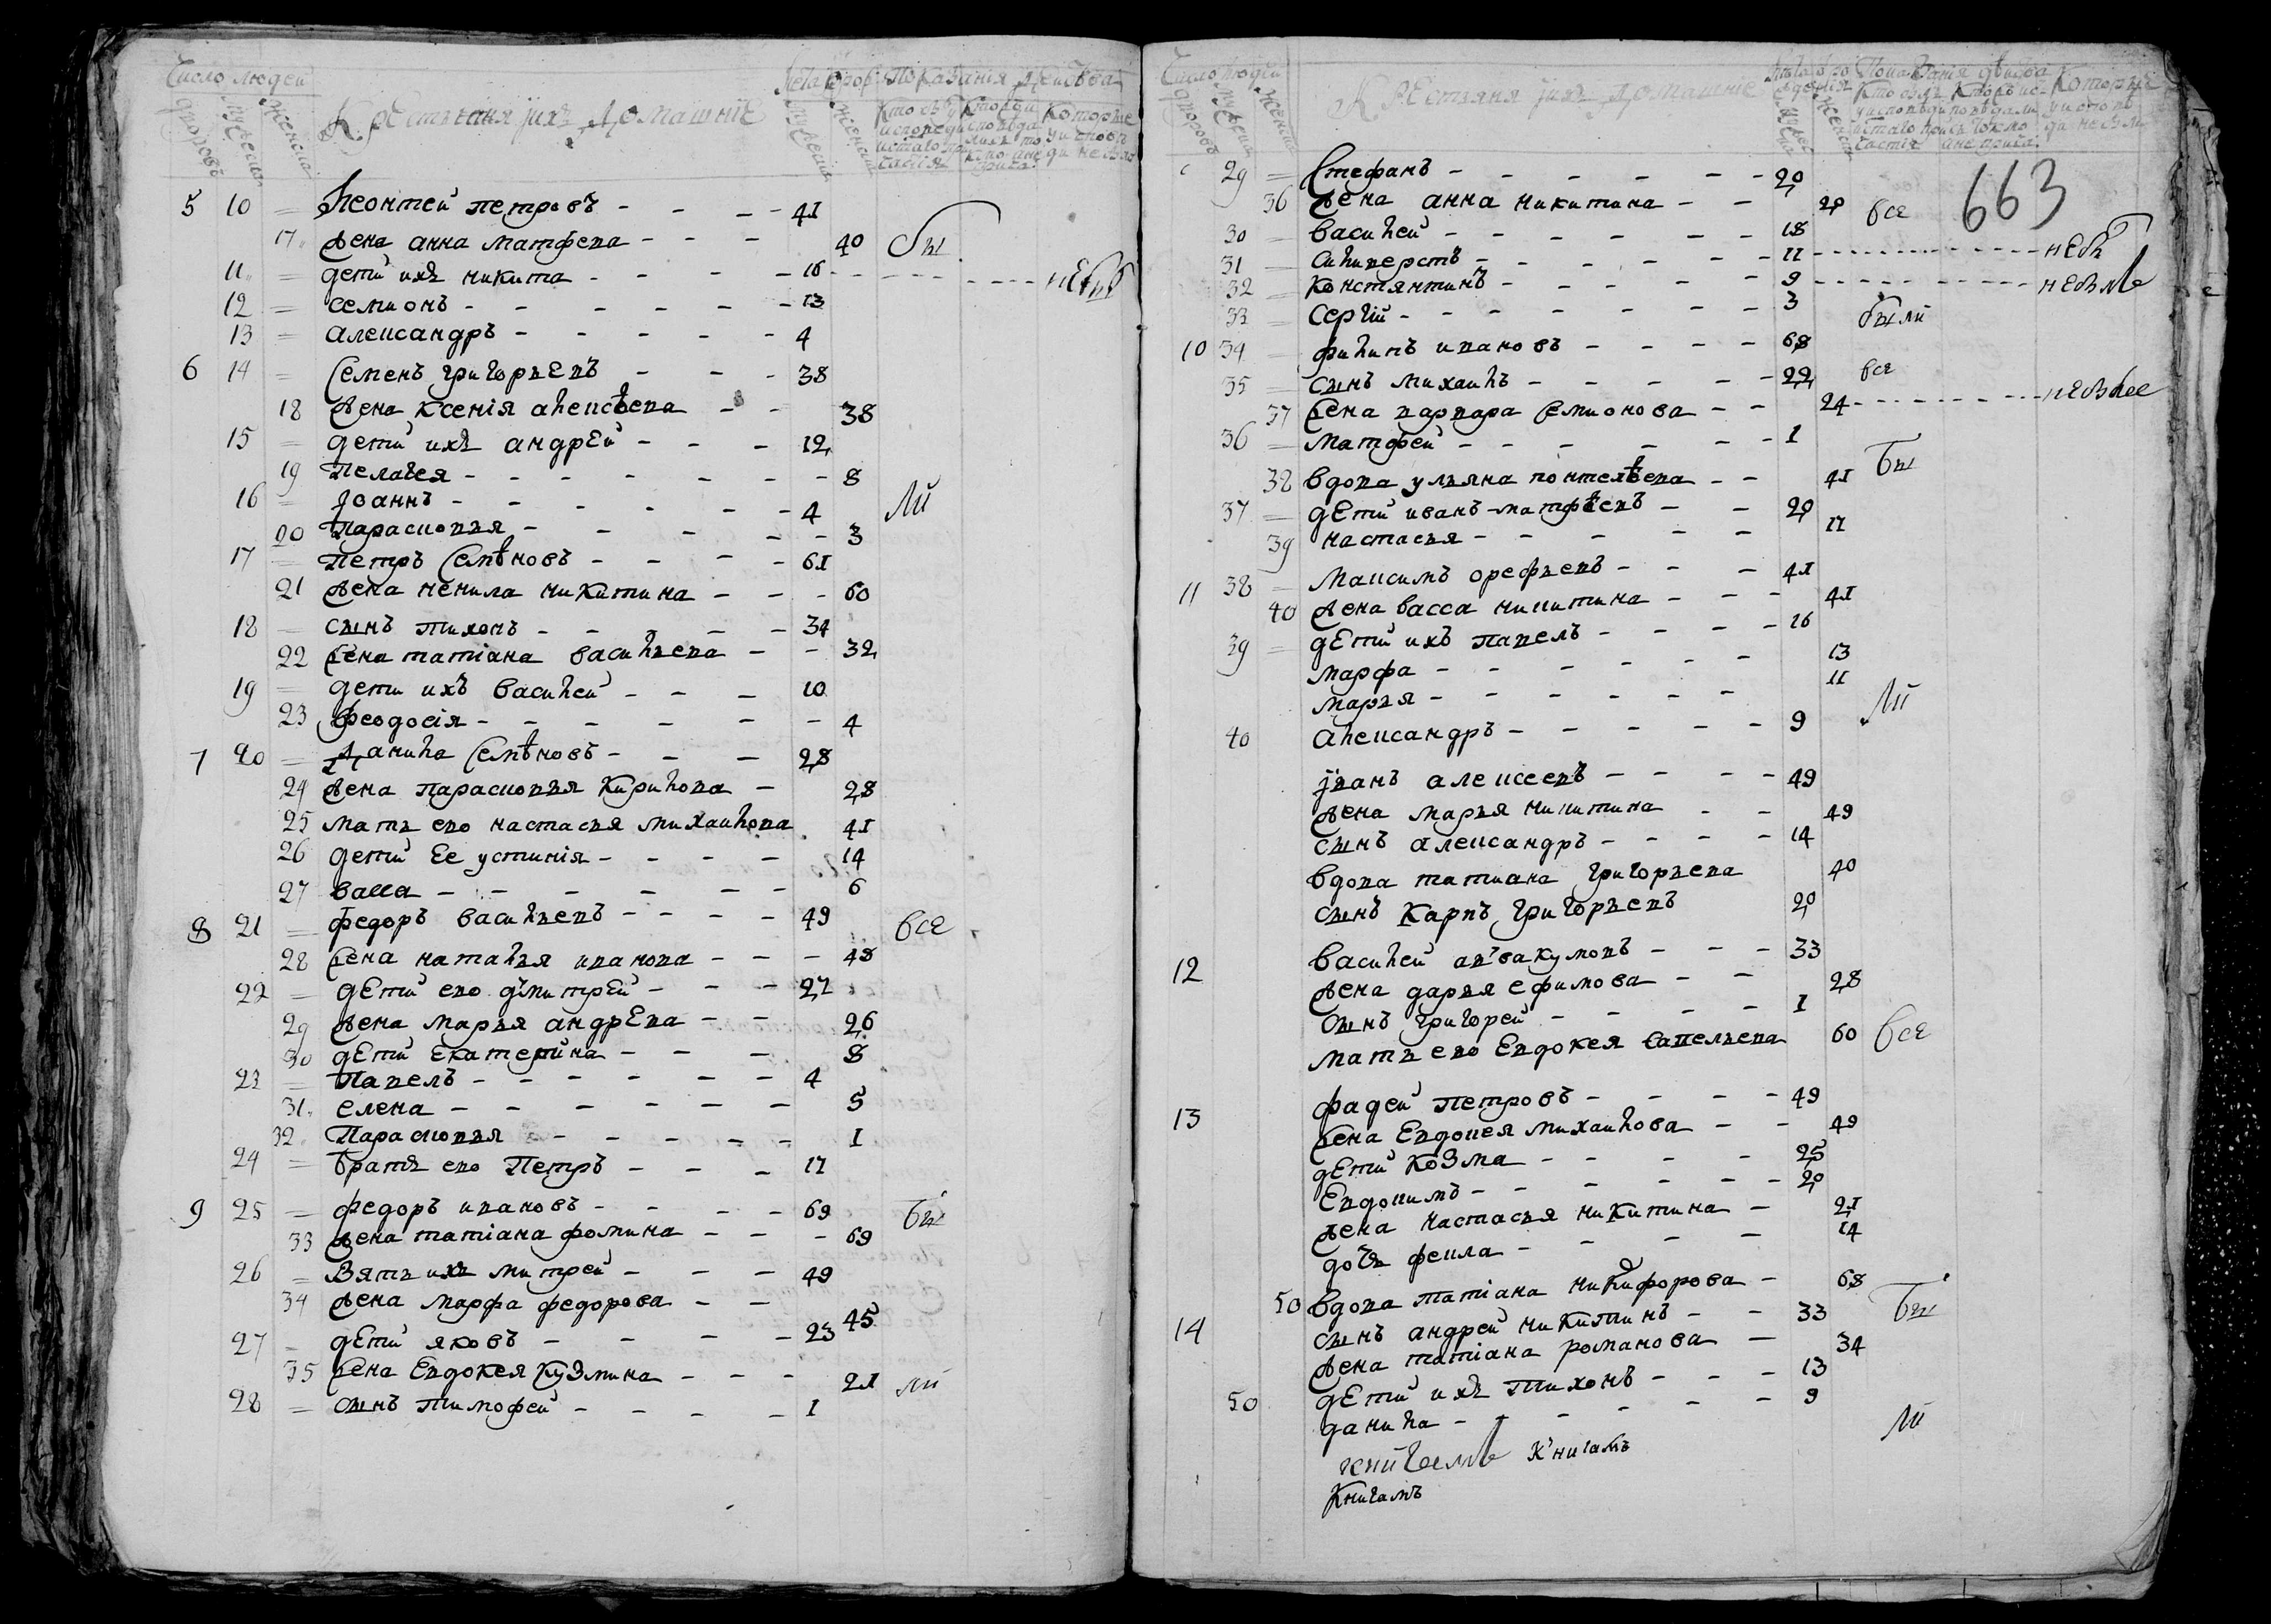 Число людей
дворовъ
мужеска
женска
Крестьяня ихъ домашніе
Лета
мужеска
женска
Показанія действа
Которые
5 10 Леонтей петровъ - - - 41
17 жена анна матфева - - - 40 бы
11 дети ихъ никита - - - 16 - - - небы
12 семионъ - - - 13
13 александръ - - - 4
6 14 Семенъ григорьевъ - - - 38
18 жена ксенія алексѣева - - 38
15 дети ихъ андрей - - - 12
19 Пелагея - - - 8
16 Іоаннъ - - - 4 ли
20 Парасковья - - - 3
17 Петръ Семѣновъ - - - 61
21 жена ненила никитина - - - 60
18 сынъ тихонъ - - - 34
22 жена татіана васильева - - 32
19 дети ихъ василей - - - 10
23 феодосія - - - 4
7 20 Данила Семѣновъ - - - 28
24 жена парасковья Кирилова - 28
25 мать ево настасья михаилова 41
26 дети ее устинія - - - 14
27 васса - - - 6
8 21 федоръ васильевъ - - - 49 все
28 жена наталья иванова - - - 48
22 дети ево димитрей - - - 27
29 жена марья андрева - - 26
30 дети екатерина - - - 8
23 Павелъ - - - 4
31 елена - - - 5
32 Парасковья - - - 1
24 братъ ево Петръ - - - 17
9 25 федоръ ивановъ - - - 69 бы
33 жена татіана фомина - - - 69
26 Зять ихъ митрей - - - 49
34 жена марфа федорова - - 45
27 дети яковъ - - - 23
35 жена Евдокея Кузмина - - - 21 ли
28 сынъ тимофей - - - 1
Число людей
дворовъ
женска
Крестьяня ихъ домашніе
Которые
663
29 Стефанъ - - - 20
36 жена анна никитина - - 20 все
30 василей - - - 18
31 силиверстъ - - - 11 - - - небы
32 Констянтинъ - - - 9 - - -
33 Сергій - - - 3 были
10 34 филипъ ивановъ - - - 68
35 сынъ михаилъ - - - 22 все
37 жена варвара семионова - - 24 - - -
36 матфей - - - 1 бы
38 вдова ульяна понтелѣева - - 41
37 дети иванъ матфѣевъ - - 20
39 настасья - - - 17
11 38 Максимъ орефьевъ - - - 41
40 жена васса никитина - - - 41
39 дети ихъ павелъ - - - 16
марфа - - - 13
марья - - - 11
40 Александръ - - - 9 ли
Іванъ алексеевъ - - - 49
жена марья никитина - - 49
сынъ александръ - - - 14
вдова татиана григорьева 40
сынъ Карпъ григорьевъ 20
12 василей аввакумовъ - - - 33
жена дарья ефимова - - 28
сынъ григорей - - - 1
мать ево Евдокея савельева 60 все
13 фадей петровъ - - - 49
жена Евдокея михаилова - - 49
дети козма - - - 25
Евдокимъ - - - 20
жена настасья никитина - 21
дочь фекла - - - 14
50 вдова татіана никифорова - 68
14 сынъ андрей никитинъ - - 33 бы
жена татіана романова - 34
дети ихъ тихонъ - - - 13
50 данила - - - 9 ли
книгамъ
Книгамъ